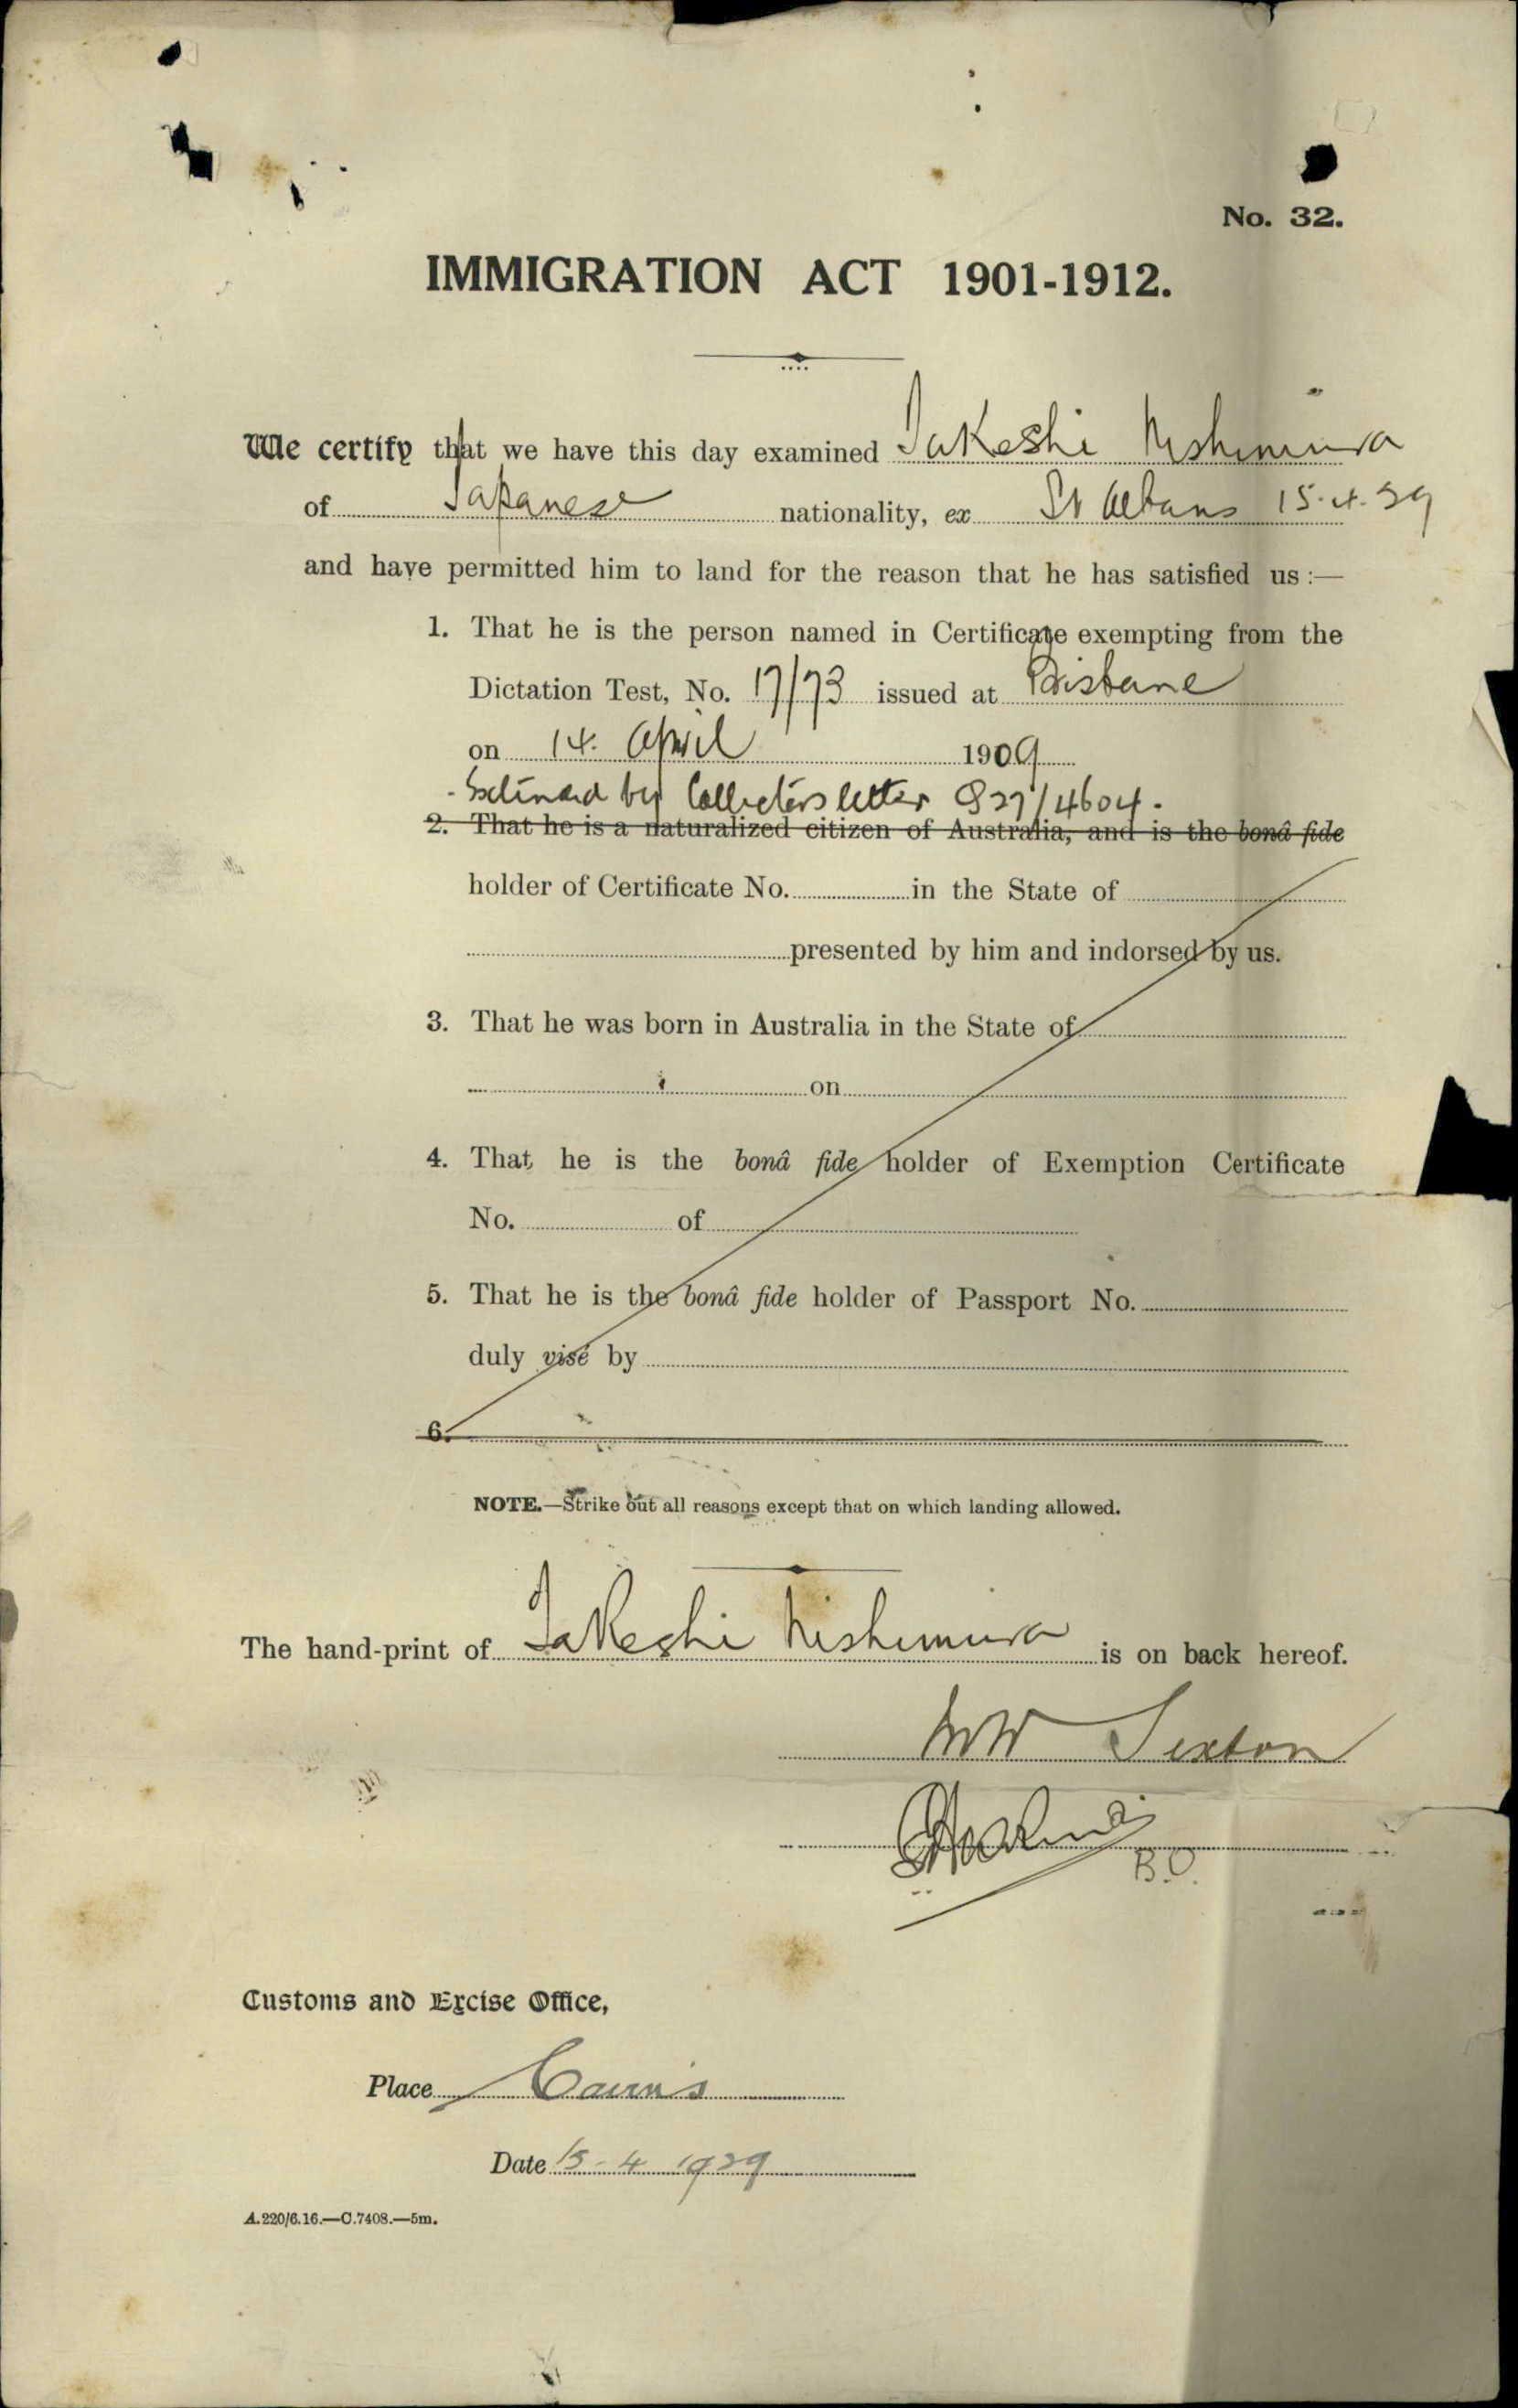 No. 32.
IMMIGRATION ACT 1901-1912.
We certify that we have this day examined Takeshi Nishimura
of Japanese nationality, ex St Albans 15.4.29
and have permitted him to land for the reason that he has satisfied us :—
1. That he is the person named in Certificate exempting from the
Dictation Test, No. 17/73 issued at Brisbane
on 14. April 1909
Extended by Collectors letter Q27/4604.
2. That he is a naturalized citizen of Australia, and is the bonâ fide
holder of Certificate No. in the State of
presented by him and indorsed by us.
3. That he was born in Australia in the State of
on
4. That he is the bonâ fide holder of Exemption Certificate
No. of
5. That he is the bonâ fide holder of Passport No.
duly visé by
6.
NOTE.—Strike out all reasons except that on which landing allowed.
The hand-print of Takeshi Nishimura is on back hereof.
Sexton
B.O.
Customs and Excise Office,
Place Cairns
Date 15-4 1929
A.220/6.16.—C.7408.—5m.